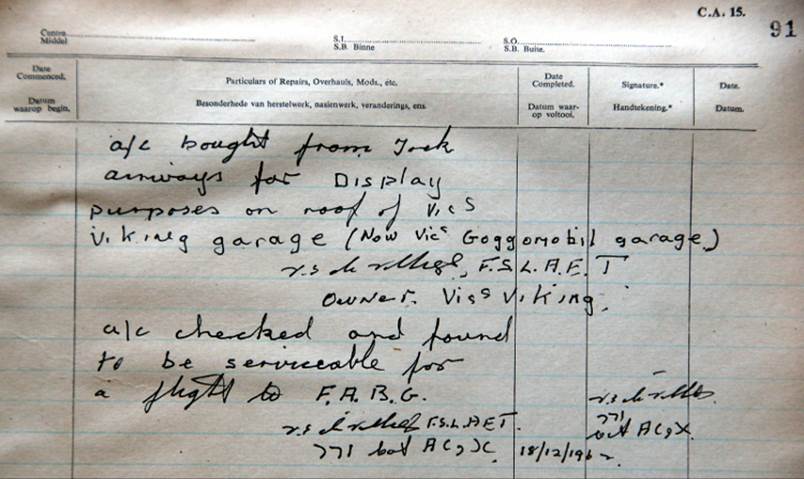 C.A. 15.
91
Centre
Middel
S.I.
S.B. Binne
S.O.
S.B. Buite.
Date Commenced.
Datum waarop begin.
Particulars of Repairs, Overhauls, Mods., etc.
Besonderhede van herstelwerk, nasienwerk, veranderings, ens.
Date Completed.
Datum waar-op voltooi.
Signature.*
Handtekening.*
Date.
Datum.
a/c bought from Trek
airways for Display
purposes on roof of Vics
Viking garage (Now Vics Goggomobil garage)
F.S.L.A.E.T
owner. Vics Viking.
a/c checked and found
to be serviceable for
a flight to F.A.B.G.
F.S.L.A.E.T.
771
771 A C, X
A C, X
18/12/196